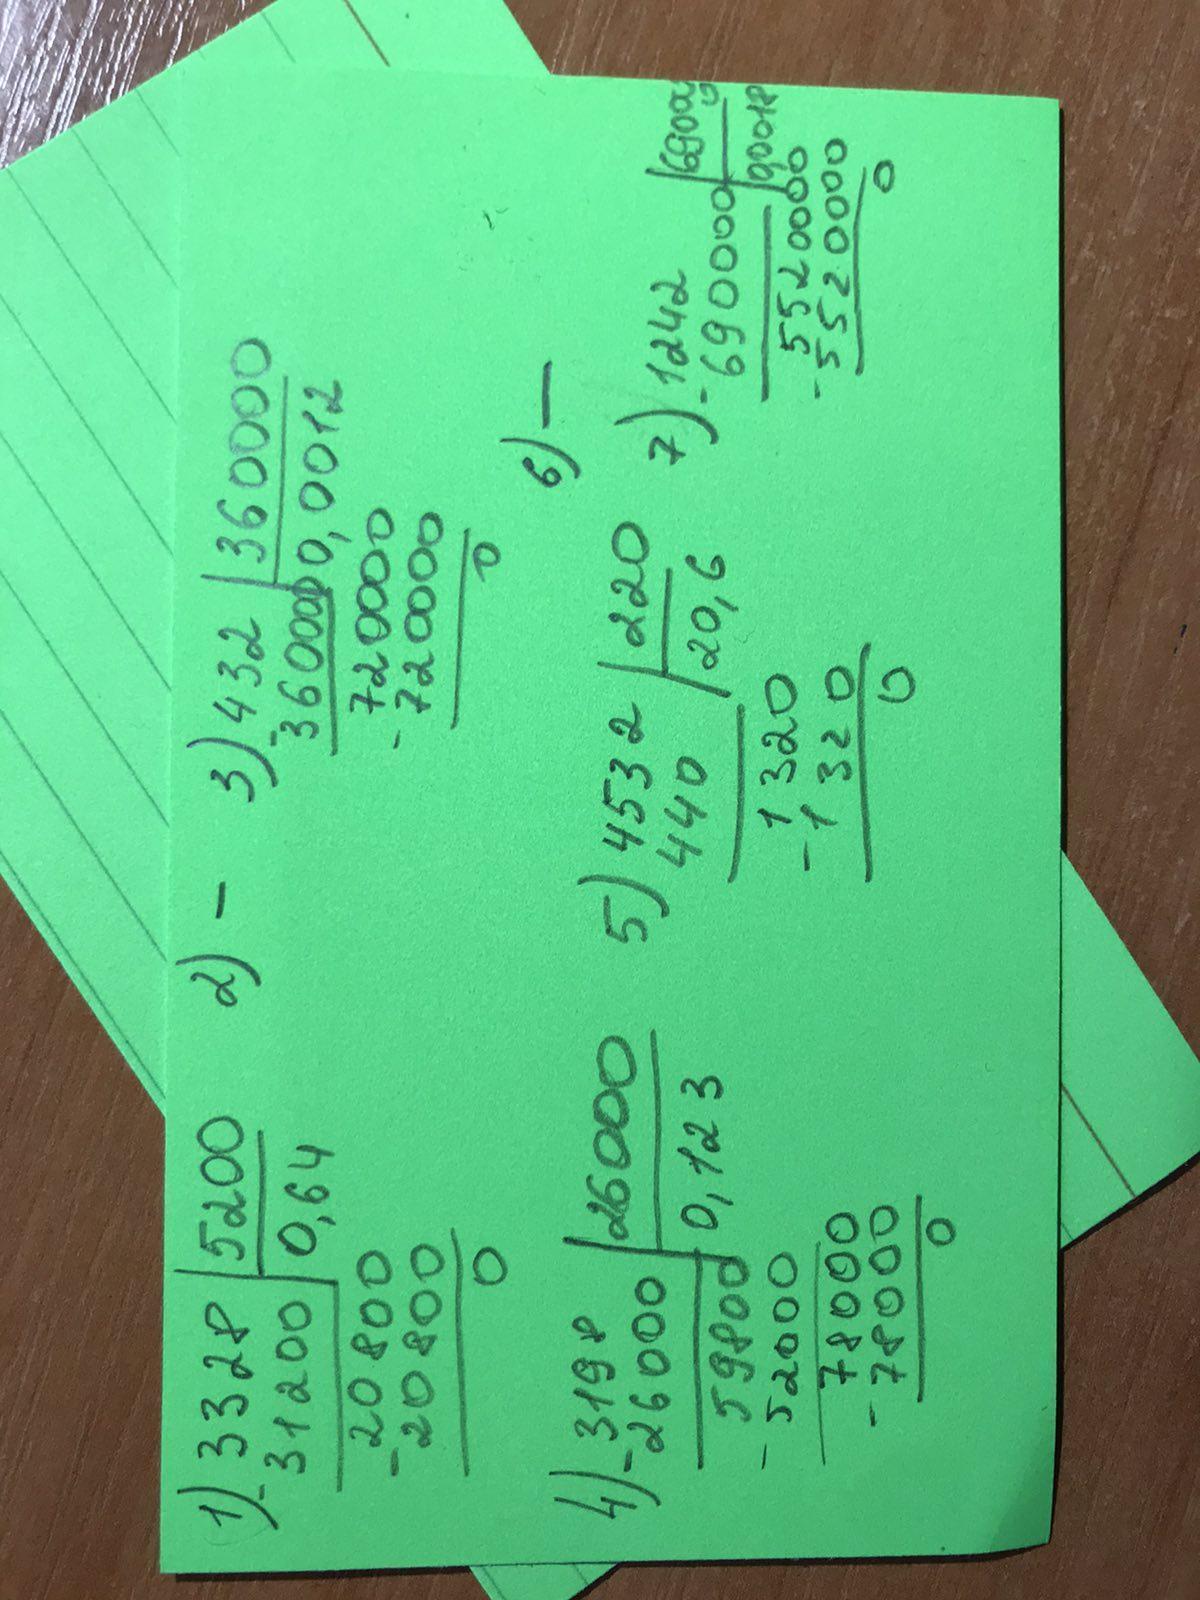 1) -3328 | 5200
31200 | 0,64
-20800
20800
0
2) -
3) -432 | 360000
360000 | 0,0012
-720000
720000
0
4) -3198 | 26000
26000 | 0,123
-59800
52000
-78000
78000
0
5) 4532 | 220
440 | 20,6
-1320
1320
0
6) -
7) -1242 | 690000
690000 | 0,0018
-5520000
5520000
0